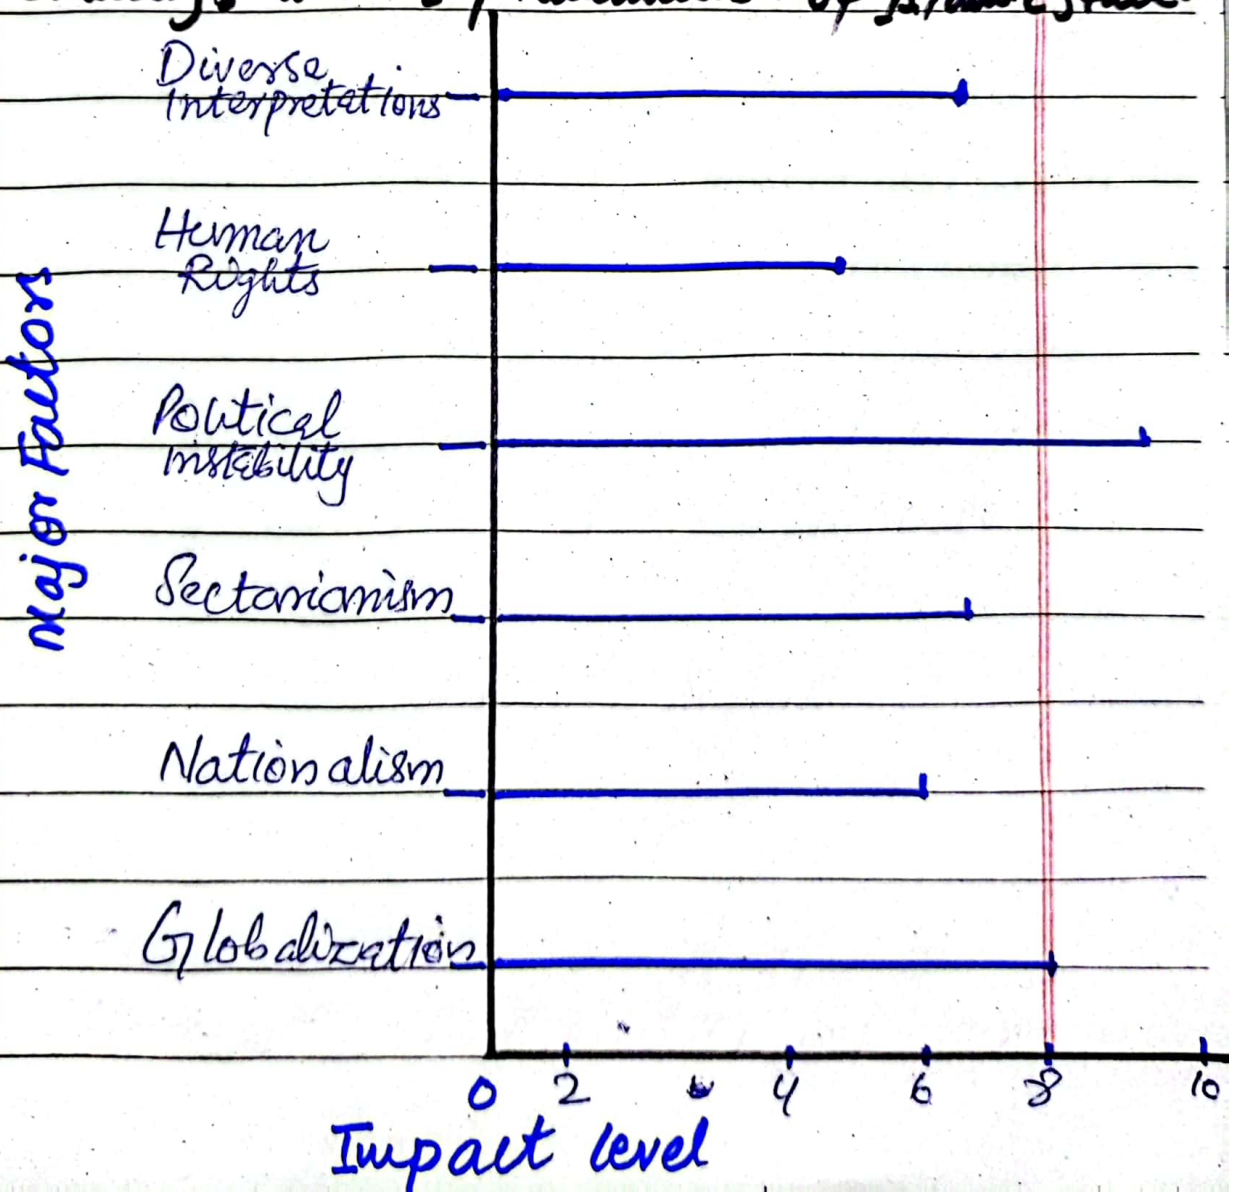 of Islamic State
Diverse
Interpretations
Human
Rights
Political
instability
Sectarianism
Nationalism
Globalization
Major Factors
0 2 4 6 8 10
Impact level